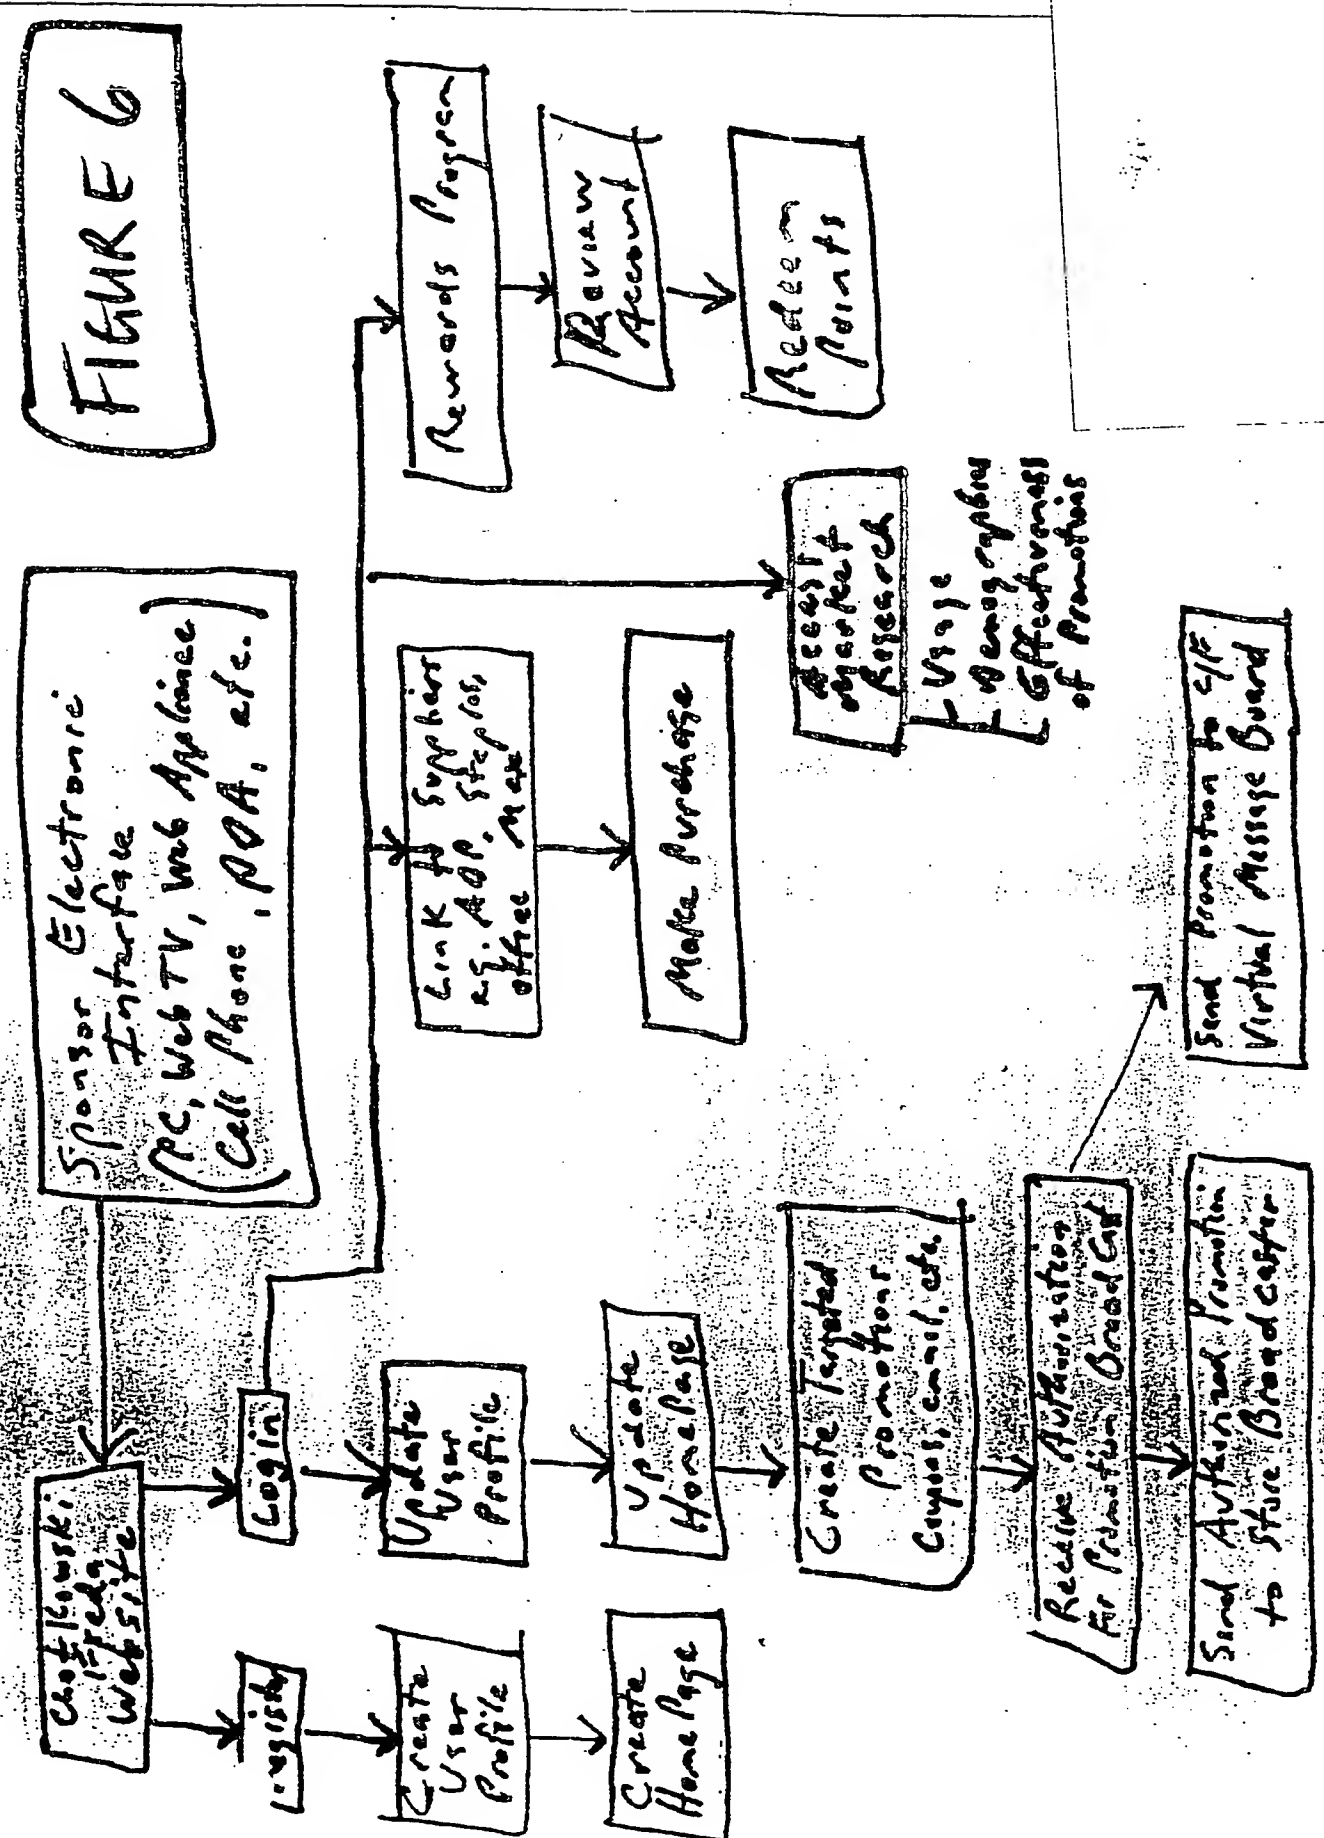 FIGURE 6
Sponsor Electronic
Interface
(PC, Web TV, Web Appliance)
(Cell Phone, PDA, etc.)
Website
Login
Create
User
Profile
Create
Home Page
Update
User
Profile
Update
HomePage
Create Targeted
Promotions
Coupons, email, etc.
Receive Authorization
For Promotion BroadCast
Send Authorized Promotion
to Store Broadcaster
Send Promotion to C/F
Virtual Message Board
Link to Suppliers
e.g. ADP, Staples,
Office Max
Make Purchase
Access
Market
Research
Usage
Demographics
Effectiveness
of Promotions
Rewards Program
Review
Account
Redeem
Points